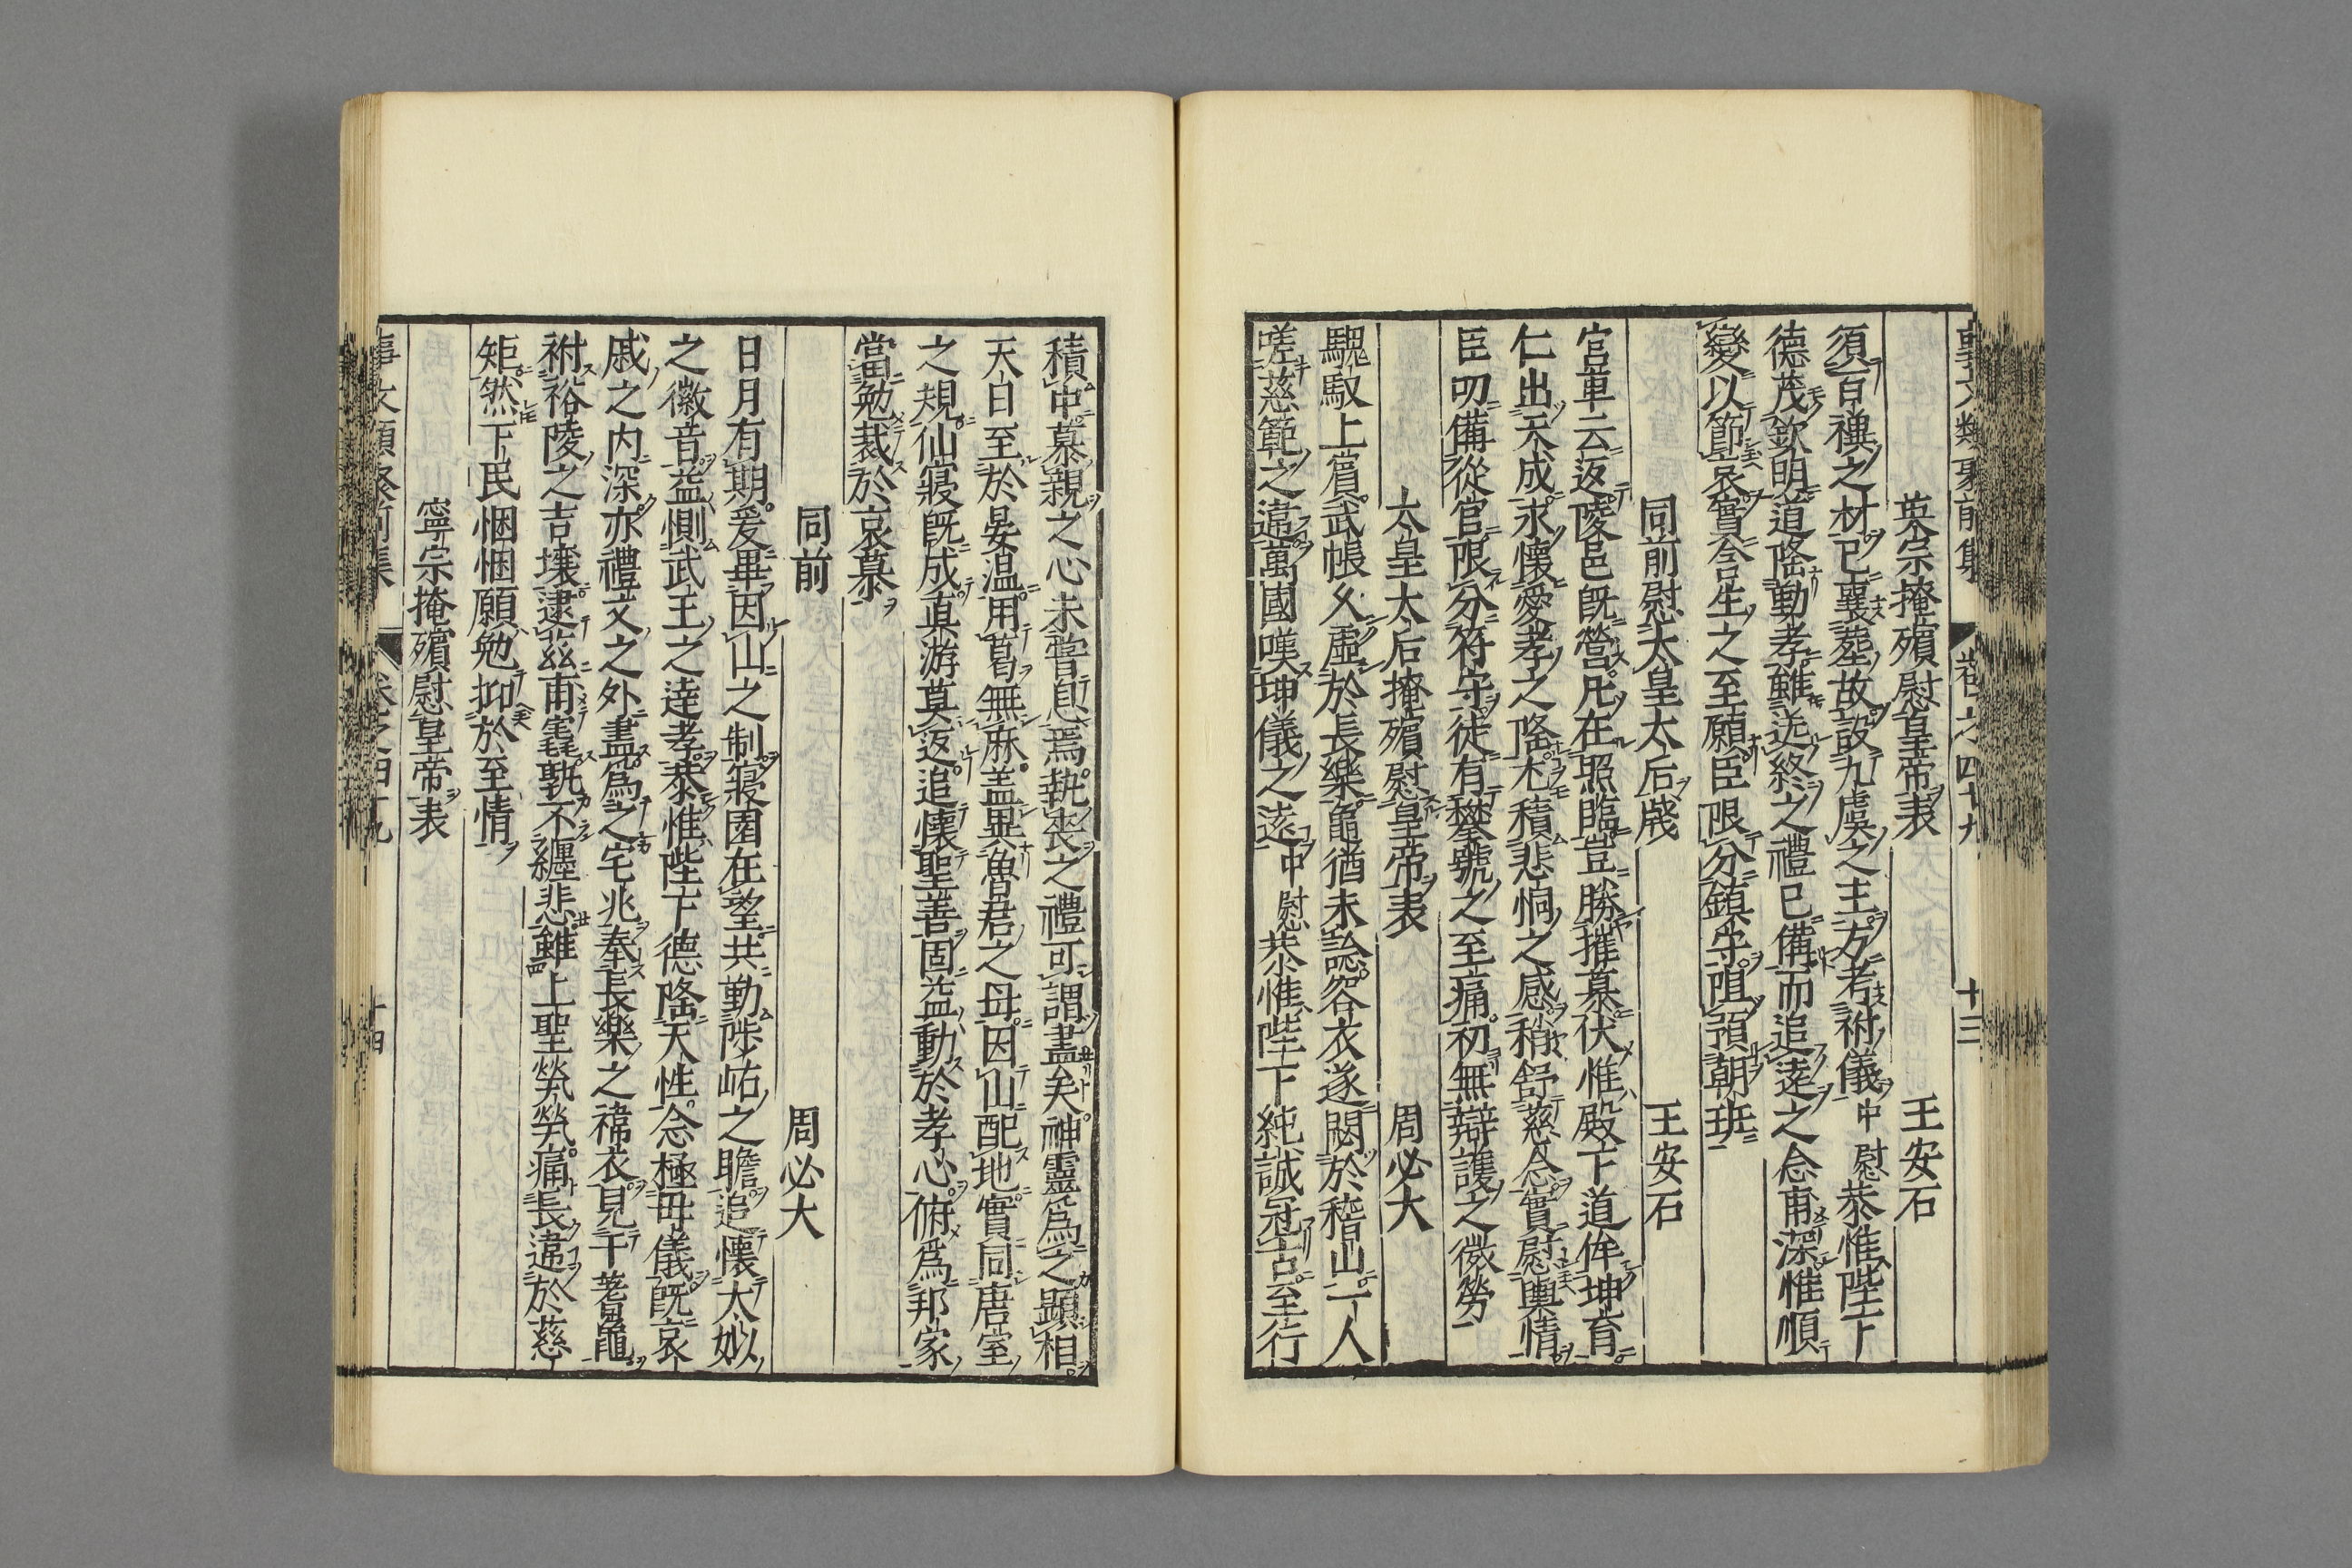 事文類聚前集 卷之四十九 十三
英宗掩殯慰皇帝表 王安石
須百襈之材已襄塟故設九虞之主方考祔儀中慰恭惟陛下
德茂欽明道隆勤孝雖送終之禮已備而追遠之念甫深惟順
變以節哀實含生之至願臣限分鎮守阻預朝班
同前慰太皇太后牋 王安石
宮車云返陵邑既營凡在照臨豈勝摧慕伏惟殿下道侔坤育
仁出天成永懷愛孝之隆尤積悲恫之感稍舒慈念實慰輿情
臣叨備從官限分符守徒有攀號之至痛初無辯護之微勞
太皇太后掩殯慰皇帝表 周必大
騩馭上賔武帳久虛於長樂龜猶未諡容衣遂閟於稽山一人
嗟慈範之違萬國嘆坤儀之遠中慰恭惟陛下純誠冠古至行
積中慕親之心未嘗息焉執喪之禮可謂盡矣神靈爲之顯相
天日至於晏温用葛無麻盖異魯君之母因山配地實同唐室
之規仙寢既成真游莫返追懷聖善固益動於孝心俯爲邦家
當勉裁於哀慕
同前 周必大
日月有期爰畢因山之制寢園在望共勤陟岵之瞻追懷太姒
之徽音益惻武王之達孝恭惟陛下德隆天性念極母儀既哀
戚之内深亦禮文之外盡爲之宅兆奉長樂之禕衣見于蓍龜
祔裕陵之吉壤逮茲甫窆孰不纒悲雖上聖煢煢痛長違於慈
矩然下民悃悃願勉抑於至情
寧宗掩殯慰皇帝表
事文類聚前集 卷之四十九 十四